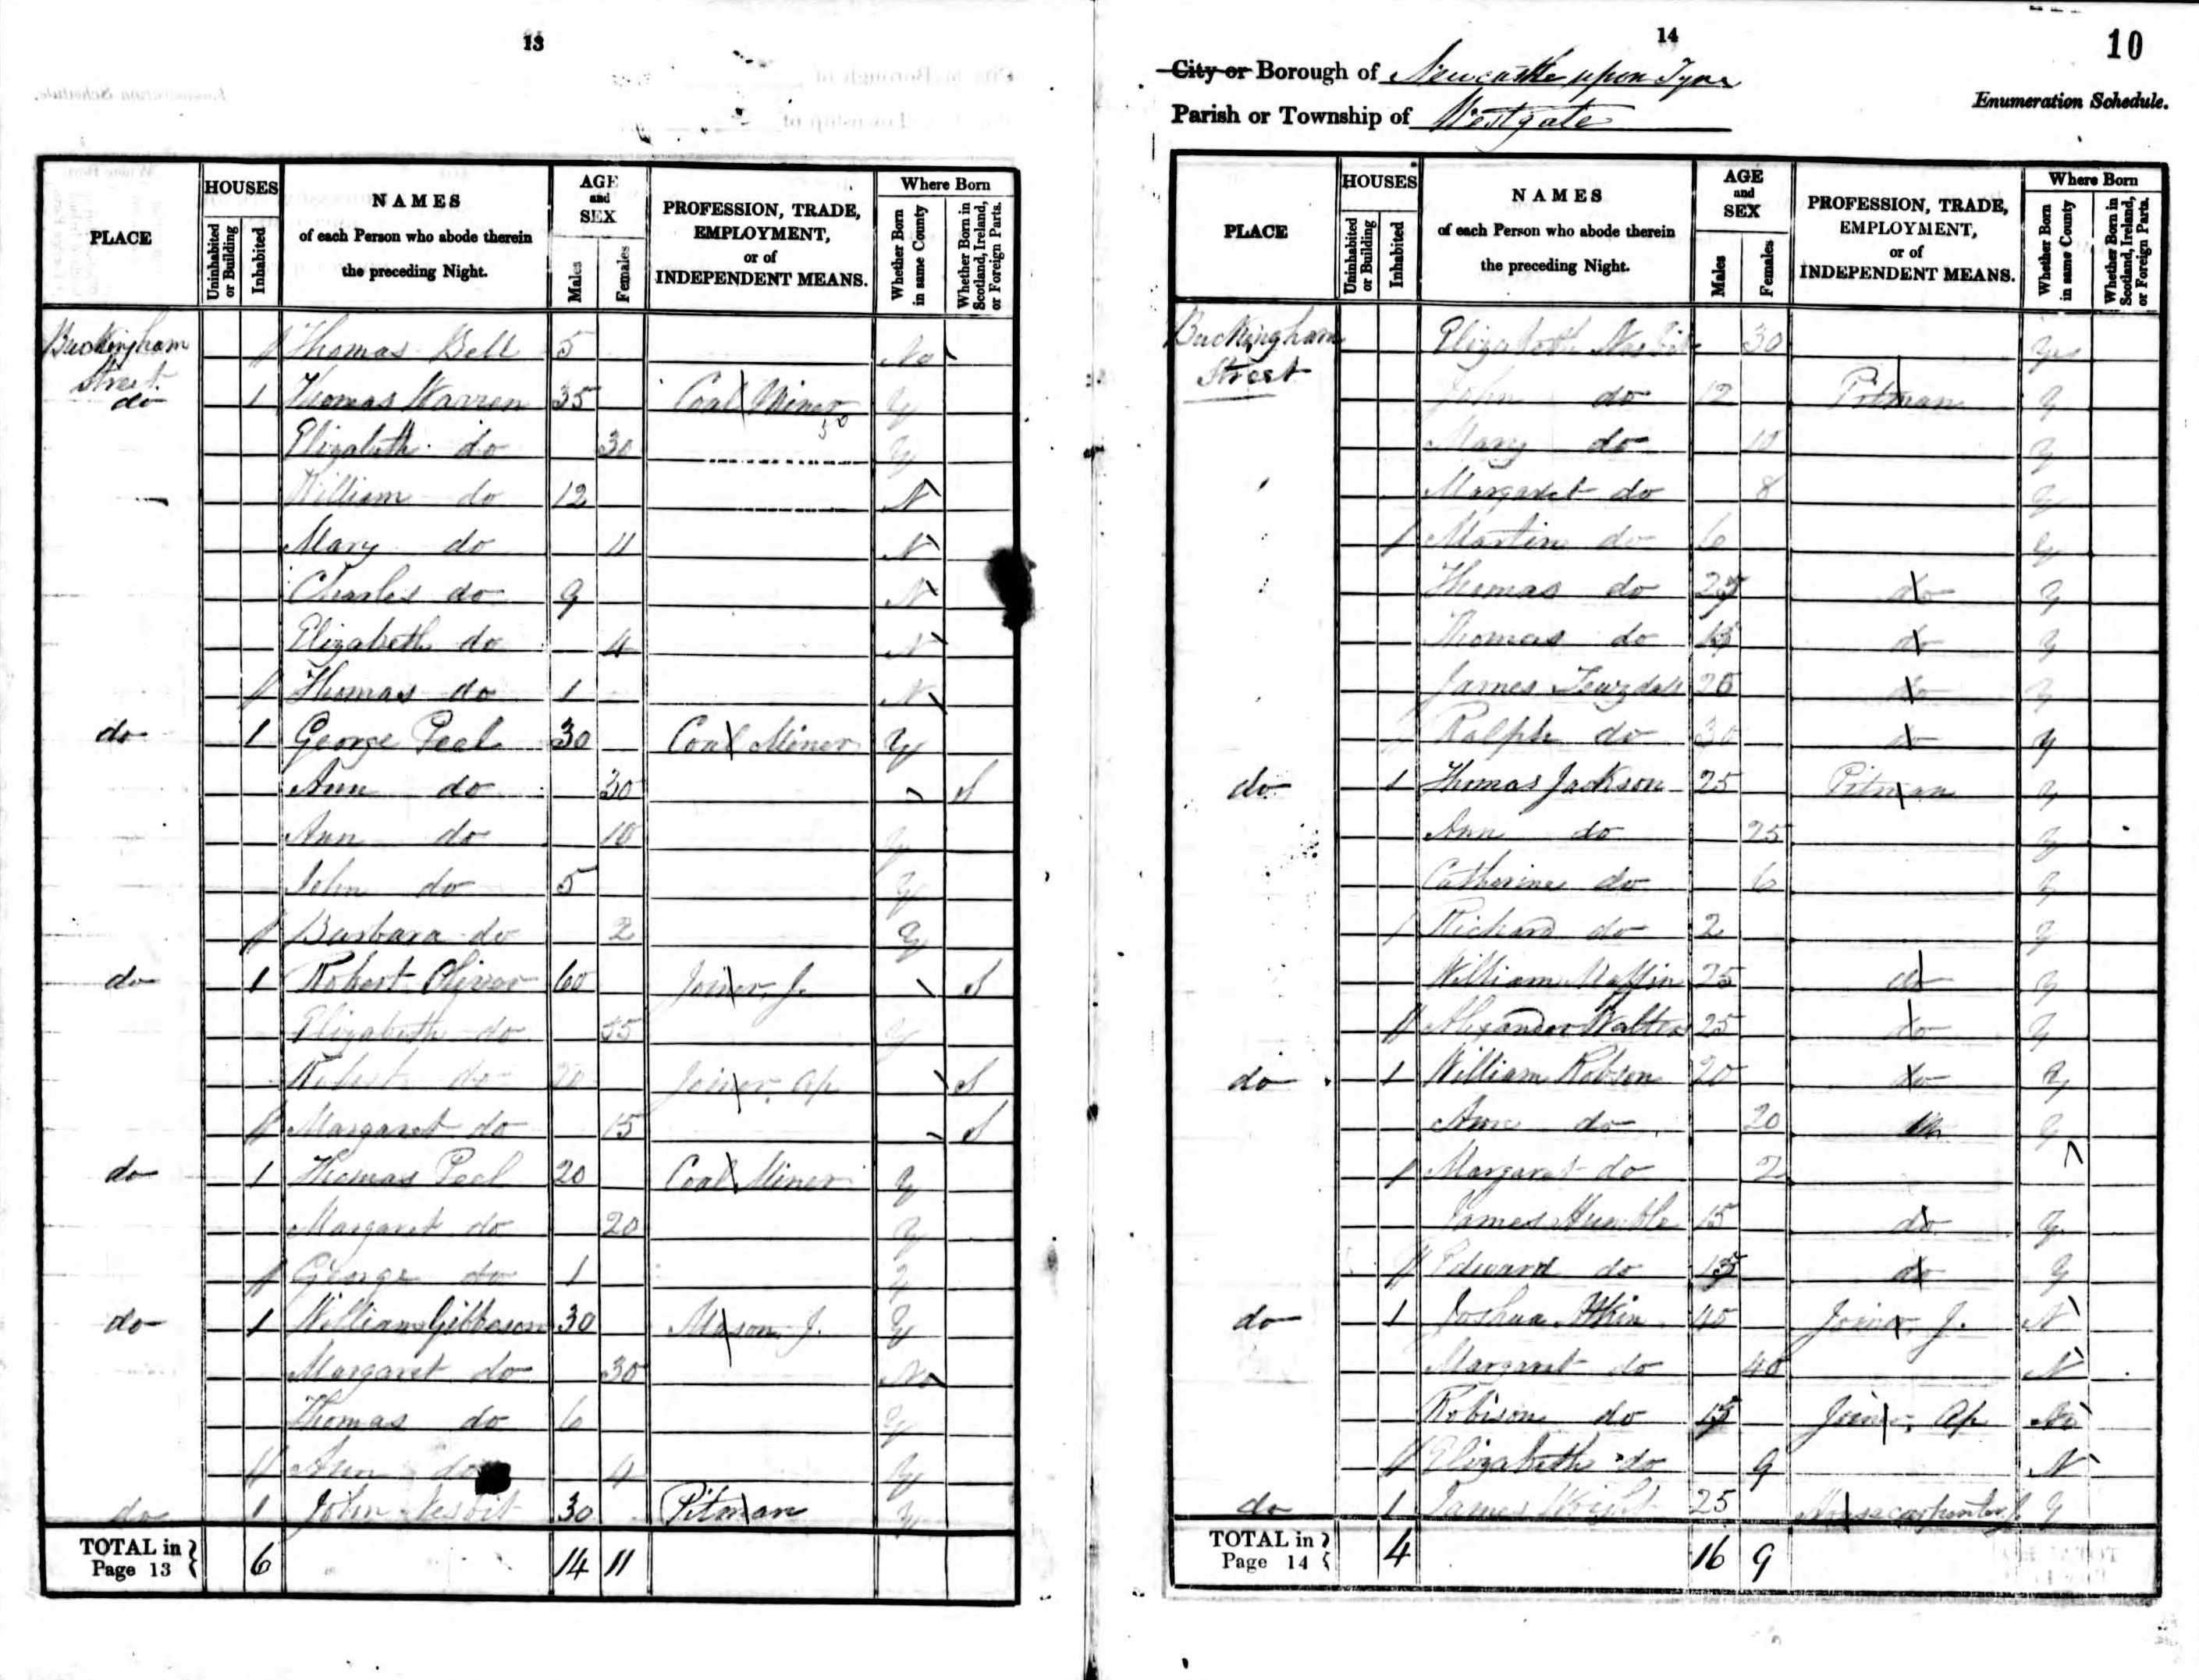 13
HOUSES
AGE
and
SEX
Where Born
PLACE
Uninhabited or Building
Inhabited
NAMES
of each Person who abode therein
the preceding Night.
Males
Females
PROFESSION, TRADE,
EMPLOYMENT,
or of
INDEPENDENT MEANS.
Whether Born in same County
Whether Born in Scotland, Ireland, or Foreign Parts.
Buckingham Street Thomas Bell 5 No
do 1 Thomas Warren 35 Coal Miner Y
Elizabeth do 30 Y
William do 12 N
Mary do 11 N
Charles do 9 N
Elizabeth do 4 N
Thomas do 1 N
do 1 George Peel 30 Coal Miner Y
Ann do 30 S
Ann do 10 Y
John do 5 Y
Barbara do 2 Y
do 1 Robert Oliver 60 Joiner J. S
Elizabeth do 55 Y
Robert do 20 Joiner Ap S
Margaret do 15 S
do 1 Thomas Peel 20 Coal Miner Y
Margaret do 20 Y
George do 1 Y
do 1 William Gibbeson 30 Mason J. Y
Margaret do 30 No
Thomas do 6 Y
Ann do 4 Y
do 1 John Nesbit 30 Pitman Y
TOTAL in Page 13 6 14 11
14
10
City or Borough of Newcastle upon Tyne
Parish or Township of Westgate
Enumeration Schedule.
HOUSES
AGE
and
SEX
Where Born
PLACE
Uninhabited or Building
Inhabited
NAMES
of each Person who abode therein
the preceding Night.
Males
Females
PROFESSION, TRADE,
EMPLOYMENT,
or of
INDEPENDENT MEANS.
Whether Born in same County
Whether Born in Scotland, Ireland, or Foreign Parts.
Buckingham Street Elizabeth Nesbit 30 Yes
John do 12 Pitman Y
Mary do 10 Y
Margaret do 8 Y
Martin do 6 Y
Thomas do do Y
Thomas do 15 do Y
James do Y
Ralph do 30 do Y
do 1 Thomas Jackson 25 Pitman Y
Ann do 25 Y
Catherine do 6 Y
Richard do 2 Y
William 25 do Y
Alexander Walter 25 do Y
do 1 William Robson 20 do Y
Ann do 20 Y
Margaret do 2
James Humble 15 do Y
Edward do 15 do Y
do 1 Joshua Atkin 45 Joiner J. N
Margaret do 40 N
Robison do 15 Joiner Ap No
Elizabeth do 9 N
do 1 James Wright 25 Y
TOTAL in Page 14 4 16 9